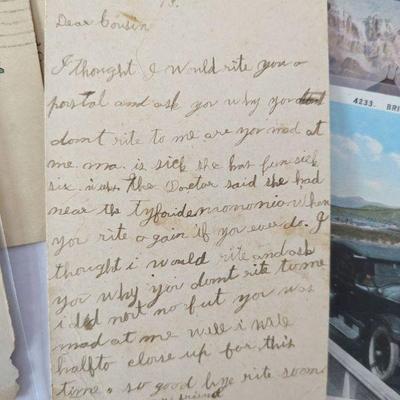 13.
Dear Cousin
I thought I would rite you a
postal and ask you why you
domt rite to me are you mad at
me. ma. is sick she has fun sick
six. the Doctor said she had
near the When
you rite a gain if you ever do. I
thought i would rite and ask
you why you domt rite to me
i did nort no fut you was
mad at me well i will
halfto close up for this
time. so good bye rite soon
friend
4233. BRI